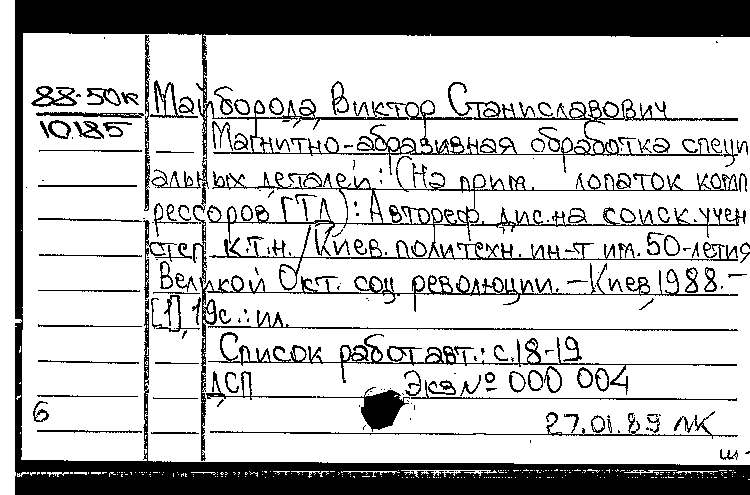 88-50к Майборода Виктор Станиславович
10185 Магнитно-абразивная обработка специ
альных деталей: (На прим. лопаток комп
рессоров ГТД): Автореф. дис.на соиск.учен
степ к.т.н. Киев. политехн. ин-т им. 50-летия
Великой Окт. соц. революции. - Киев, 1988. -
[1], 19с.: ил.
Список работ авт.: с.18-19
ДСП Экз № 000 004
6
27.01.89 ЛК